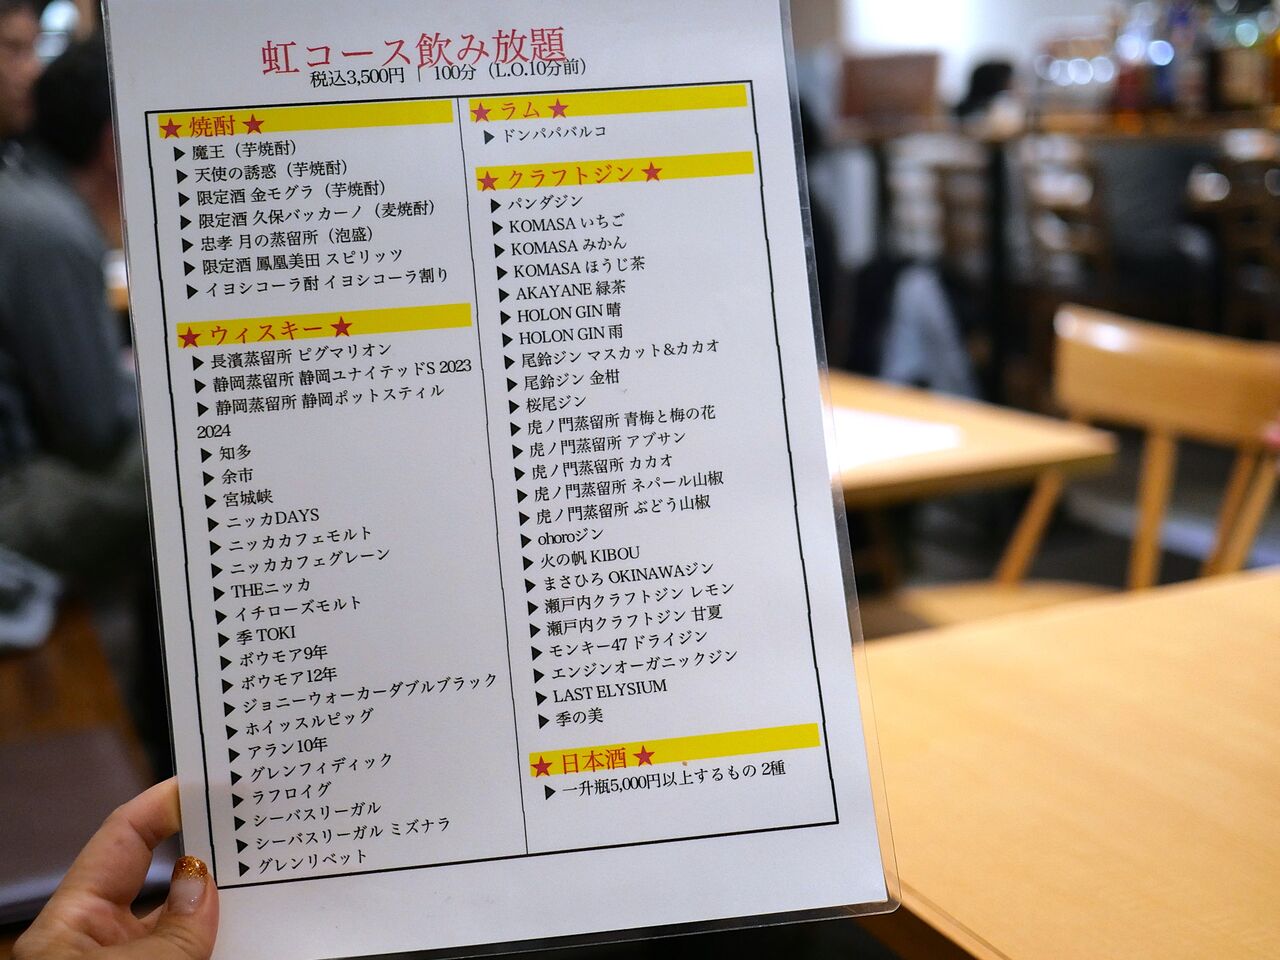 虹コース飲み放題
税込3,500円 | 100分（L.O.10分前）
★ 焼酎 ★
▶ 魔王（芋焼酎）
▶ 天使の誘惑（芋焼酎）
▶ 限定酒 金モグラ（芋焼酎）
▶ 限定酒 久保バッカーノ（麦焼酎）
▶ 忠孝 月の蒸留所（泡盛）
▶ 限定酒 鳳凰美田 スピリッツ
▶ イヨシコーラ酎 イヨシコーラ割り
★ ウィスキー ★
▶ 長濱蒸留所 ピグマリオン
▶ 静岡蒸留所 静岡ユナイテッドS 2023
▶ 静岡蒸留所 静岡ポットスティル
2024
▶ 知多
▶ 余市
▶ 宮城峡
▶ ニッカDAYS
▶ ニッカカフェモルト
▶ ニッカカフェグレーン
▶ THEニッカ
▶ イチローズモルト
▶ 季 TOKI
▶ ボウモア9年
▶ ボウモア12年
▶ ジョニーウォーカーダブルブラック
▶ ホイッスルピッグ
▶ アラン10年
▶ グレンフィディック
▶ ラフロイグ
▶ シーバスリーガル
▶ シーバスリーガル ミズナラ
▶ グレンリベット
★ ラム ★
▶ ドンパパバルコ
★ クラフトジン ★
▶ パンダジン
▶ KOMASA いちご
▶ KOMASA みかん
▶ KOMASA ほうじ茶
▶ AKAYANE 緑茶
▶ HOLON GIN 晴
▶ HOLON GIN 雨
▶ 尾鈴ジン マスカット&カカオ
▶ 尾鈴ジン 金柑
▶ 桜尾ジン
▶ 虎ノ門蒸留所 青梅と梅の花
▶ 虎ノ門蒸留所 アブサン
▶ 虎ノ門蒸留所 カカオ
▶ 虎ノ門蒸留所 ネパール山椒
▶ 虎ノ門蒸留所 ぶどう山椒
▶ ohoroジン
▶ 火の帆 KIBOU
▶ まさひろ OKINAWAジン
▶ 瀬戸内クラフトジン レモン
▶ 瀬戸内クラフトジン 甘夏
▶ モンキー47 ドライジン
▶ エンジンオーガニックジン
▶ LAST ELYSIUM
▶ 季の美
★ 日本酒 ★
▶ 一升瓶5,000円以上するもの 2種